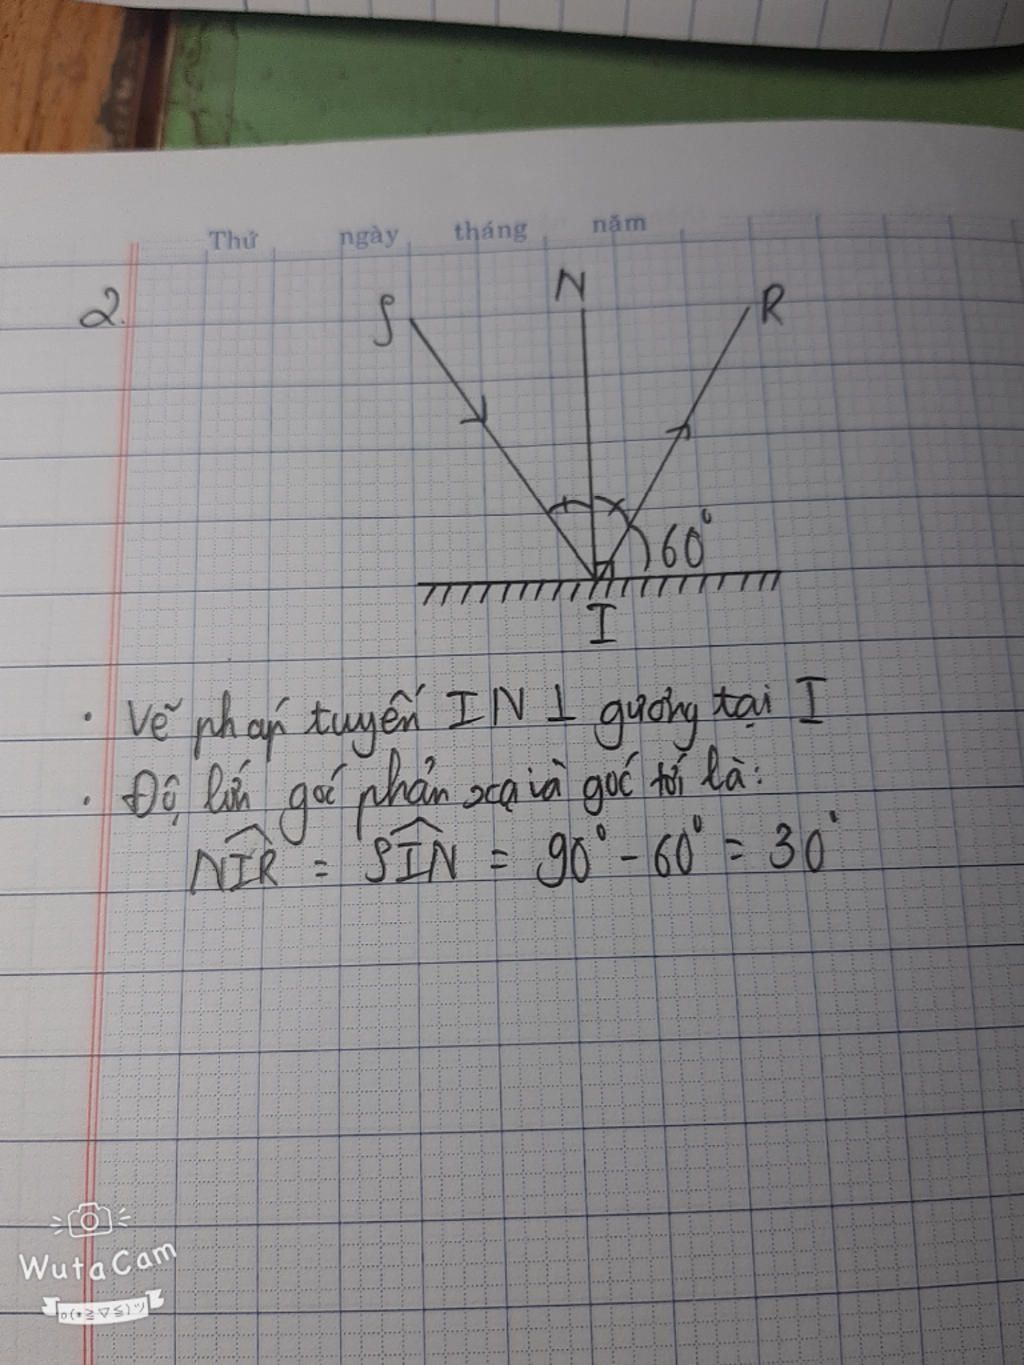 Thứ ngày tháng năm
2.
S N R
60°
I
· Vẽ pháp tuyến IN ⊥ gương tại I
· Độ lớn góc phản xạ và góc tới là:
NIR = SIN = 90° - 60° = 30°
WutaCam
o(*≧▽≦)ツ